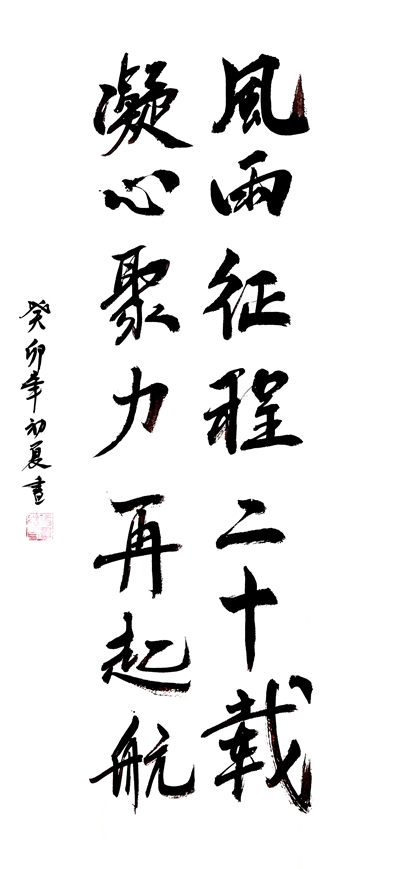 風雨征程二十載
凝心聚力再起航
癸卯年初夏書